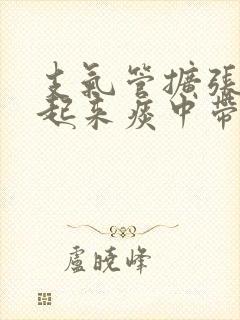 支氣管擴張
起來痰中帶
盧曉峰